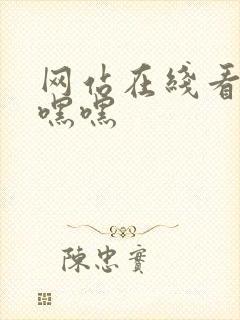 网佔在綫看
嘿嘿
陳忠實